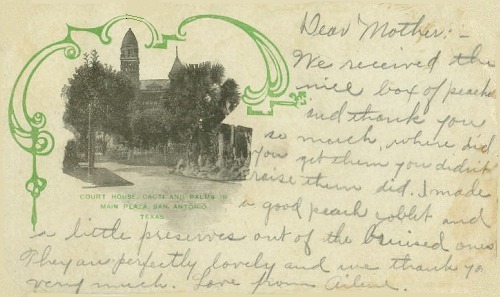 Dear Mother:-
We received the
nice box of peaches
and thank you
so much, where did
you get them you didn't
raise them did. I made
a good peach cobbler and
a little preserves out of the bruised ones
They are perfectly lovely and we thank you
very much. Love from Arlene.
COURT HOUSE, CACTI AND PALMS IN
MAIN PLAZA, SAN ANTONIO,
TEXAS